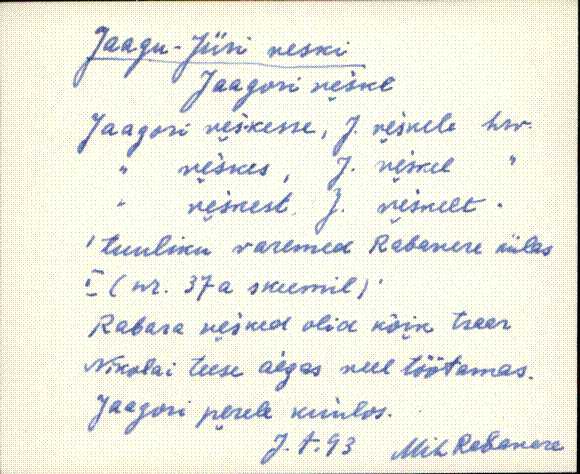 Jaagu-Jüri veski
Jaagori veske
Jaagori veskesse, J. veskele hrv.
" veskes, J. veskel "
" veskest, J. veskelt "
'tuuliku varemed Rabavere külas
(nr. 37a skeemil)'
Rabara vesked olid kõik tsaar
Nikolai teese aegas veel töötamas.
Jaagori perele kuulos.
J.t. 93 Mih Rabavere